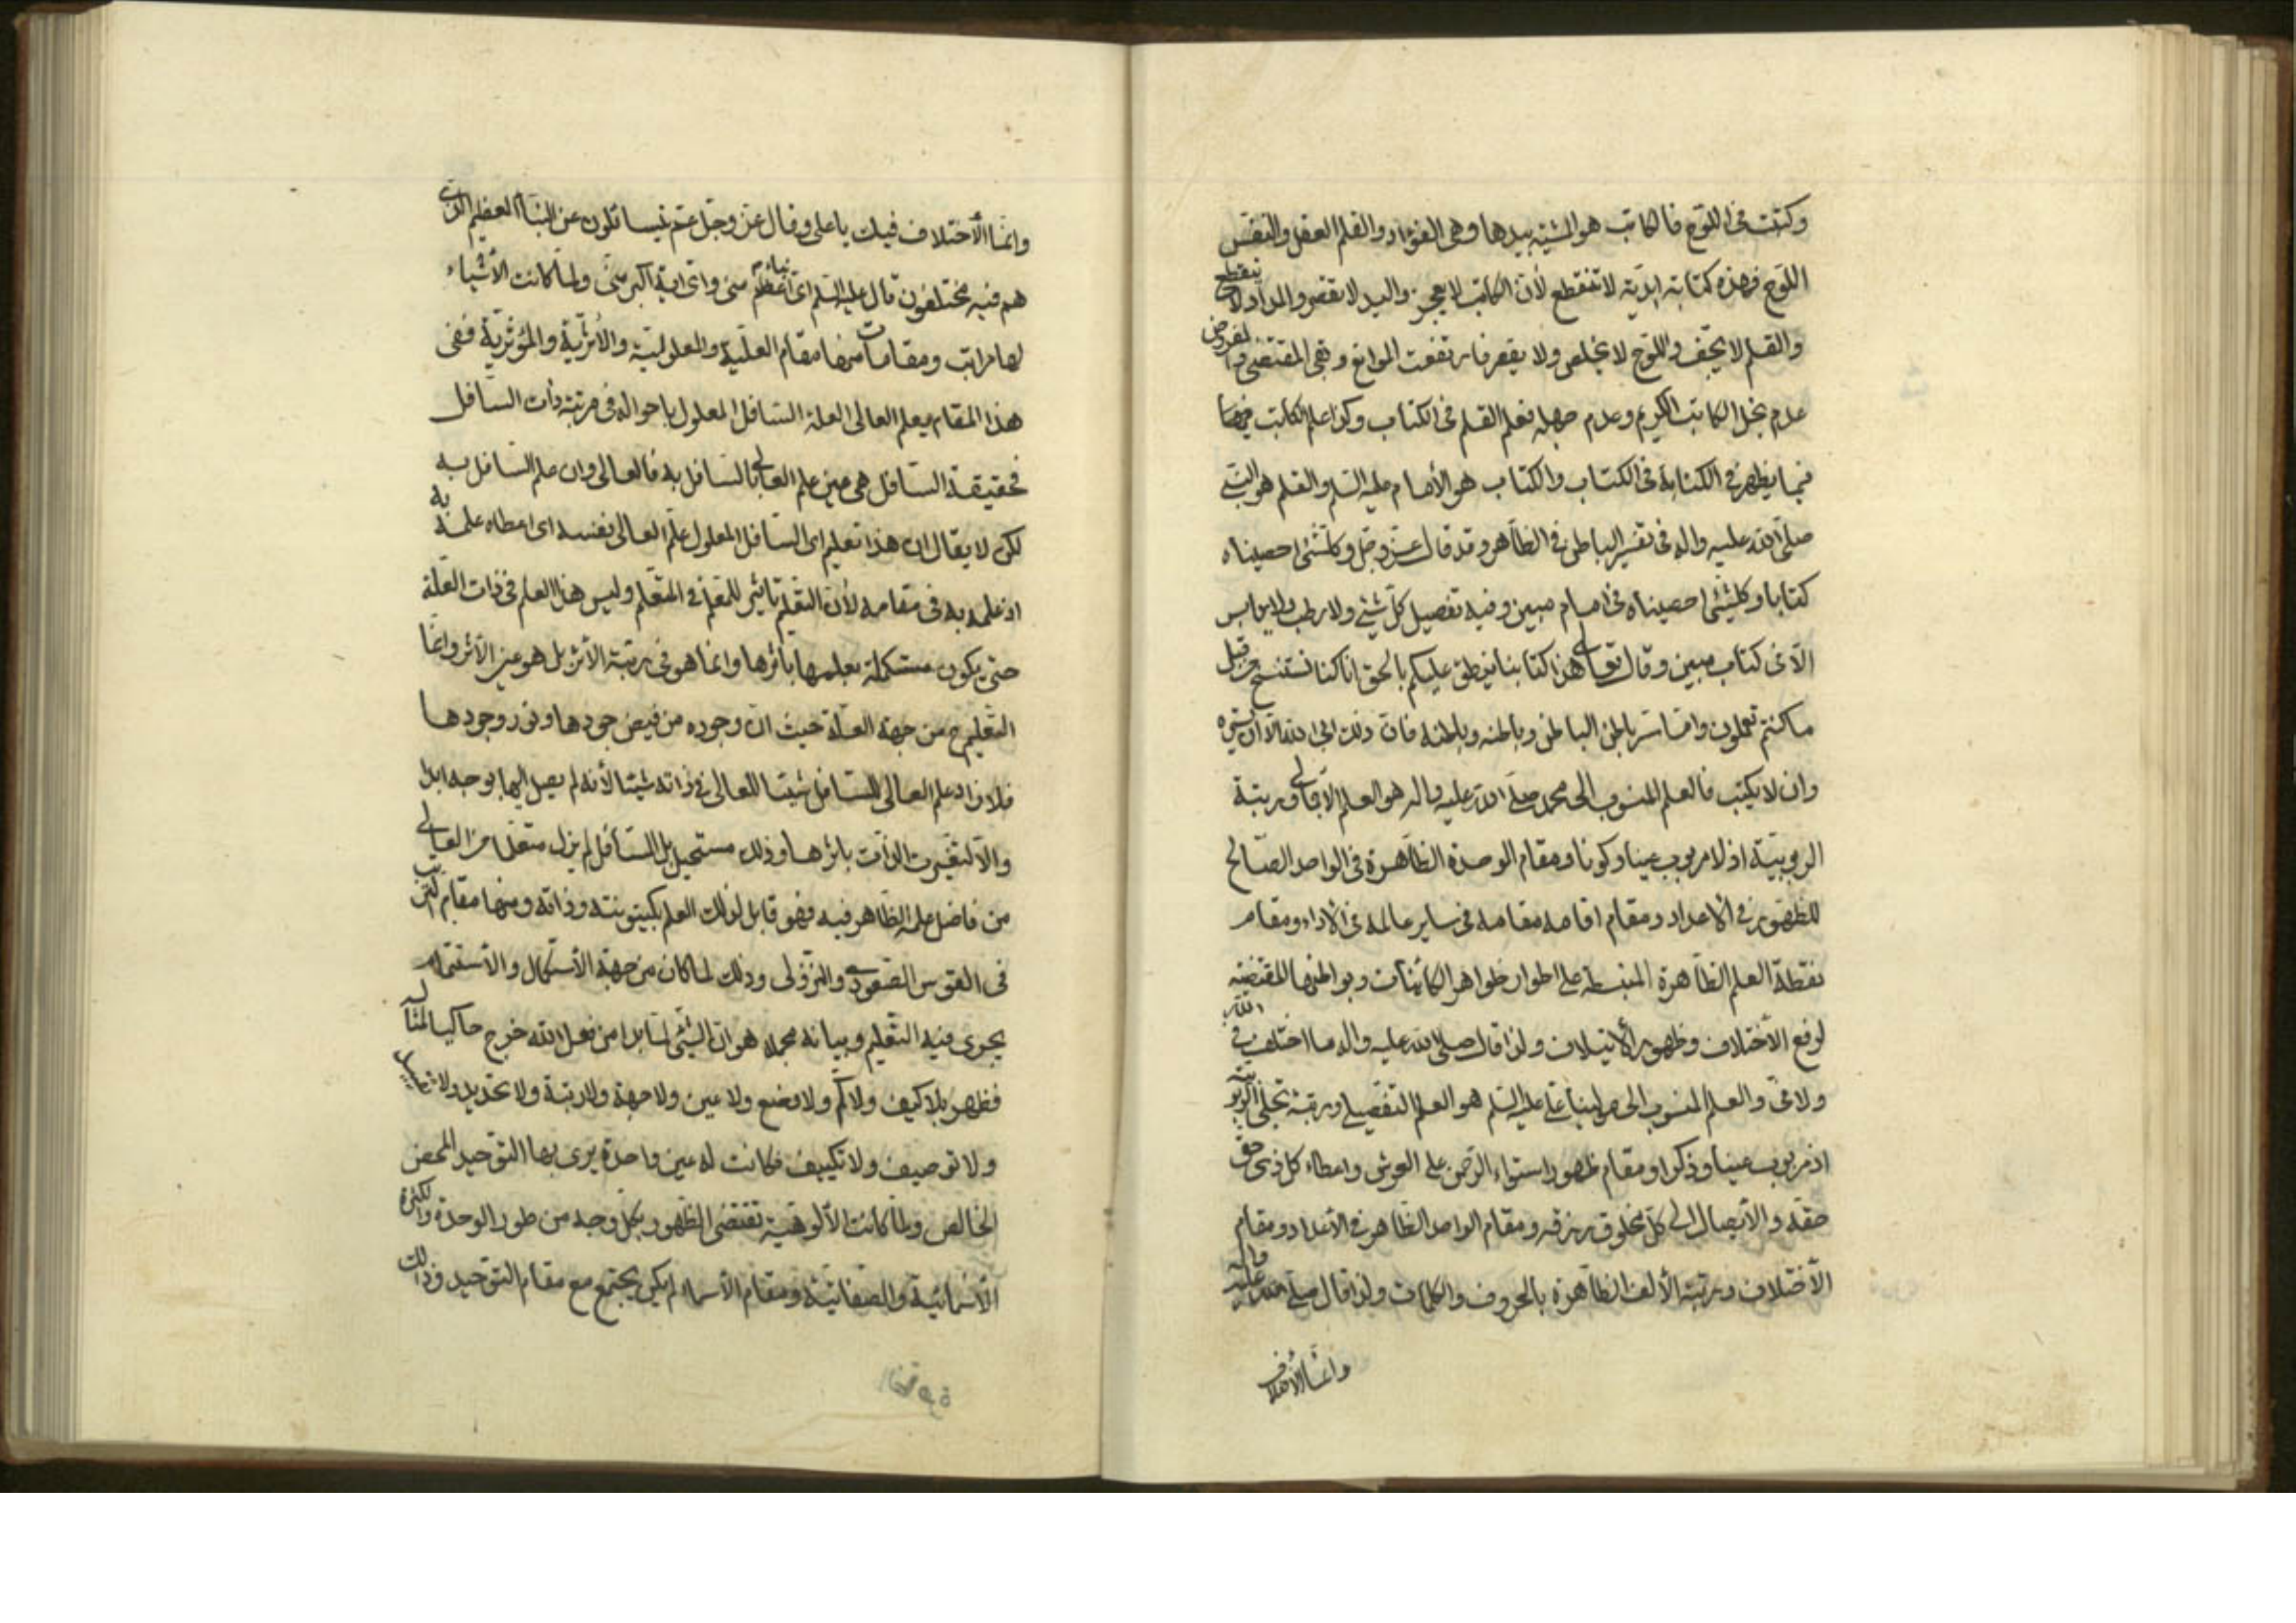 وكتبت في اللوح فالكاتب هو المشية بيدها وهي الفؤاد والقلم العقل والنفس
اللوح فهذه كتابة ابدية لا تنقطع لأن الكاتب لا يعجز واليد لا تقصر والمداد لا ينقطع
والقلم لا يجف واللوح لا يخلص ولا يقصر فارتفعت الموانع وبقي المقتضي والمفروض
عدم بخل الكاتب الكريم وعدم جهله فعلم القلم في الكتاب وكذا علم الكاتب فيهما
فيما يظهر في الكتابة في الكتاب والكتاب هو الأمام عليه السلم والقلم هو النبي
صلى الله عليه واله في تفسير الباطن في الظاهر وقد قال عز وجل وكلشئ احصيناه
كتابا وكلشئ احصيناه في امام مبين وفيه تفصيل كل شئ ولا رطب ولا يابس
الا في كتاب مبين وقال تعالى هذا كتابنا ينطق عليكم بالحق انا كنا نستنسخ
ما كنتم تعملون واما سر باطن الباطن وباطنه وباطنه فان ذلك ابى الله الا ان يستره
وان لا يكتب فالعلم المنسوب الى محمد صلى الله عليه واله هو العلم الأجمالي ورتبة
الربوبية اذ لا مربوب عينا وكونا ومقام الوحدة الظاهرة في الواحد الصالح
للظهور في الأعداد ومقام اقامه مقامه في ساير عالمه في الاداء ومقام
نقطة العلم الظاهرة المنبسطة على اطوار ظواهر الكائنات وبواطنها المقتضية
لرفع الأختلاف وظهور الأيتلاف ولذا قال صلى الله عليه واله ما اختلف في الله
ولا في والعلم المنسوب الى مولينا علي عليه السلم هو العلم التفصيلي ورتبة تجلي الربوبية
اذ مربوب عينا وذكرا ومقام ظهور استواء الرحمن على العرش واعطاء كل ذي حق
حقه والأيصال الى كل مخلوق رزقه ومقام الواحد الظاهر في الأعداد ومقام
الأختلاف ورتبة الألف الظاهرة بالحروف والكلمات ولذا قال صلى الله عليه واله
وانما الأختلاف
وانما الأختلاف فيك يا علي وقال عز وجل عم يتسائلون عن النبأ العظيم الذي
هم فيه مختلفون قال عليه السلم اي نباء اعظم مني واي اية اكبر مني ولما كانت الأشياء
لها مراتب ومقامات منها مقام العلية والمعلولية والأثرية والمؤثرية ففي
هذا المقام يعلم العالي العلة السافل المعلول باحواله في مرتبة ذات السافل
فحقيقة السافل هي عين علم العالي بالسافل به فالعالي وان علم السافل به
لكن لا يقال ان هذا تعليم اي السافل المعلول علم العالي بنفسه اي اعطاه علمه به
اذ علمه به في مقامه لأن التعليم تاثير للمعلم في المتعلم وليس هذا العلم في ذات العلة
حتى يكون مستكملة بعلمها باثرها وانما هو في رتبة الأثر بل هو عين الأثر وانما
التعليم ح من جهة العلة حيث ان وجوده من فيض جودها ونور وجودها
فلا زاد علم العالي للسافل شيئا للعالي في ذاته شيئا لأنه لم يصل اليها بوجه ابدا
والا لتغيرت الذات باثرها وذلك مستحيل بل السافل لم يزل متعلما من العالي
من فاضل علمه الظاهر فيه فهو قابل لذلك العلم بكينونته وذاته ومنها مقام الترتيب
في القوس الصعودي والنزولي وذلك لما كان من جهة الأستكمال والأستتمام
يجري فيه التعليم وبيانه مجملا هو ان الشئ لما بدا من فعل الله خرج حاكيا لمثاله
فظهر بلا كيف ولا كم ولا وضع ولا عين ولا جهة ولا رتبة ولا تحديد ولا
ولا توصيف ولا تكييف فكانت له عين واحدة يرى بها التوحيد المحض
الخالص ولما كانت الألوهية تقتضي الظهور بكل وجه من طور الوحدة والكثرة
الأسمائية والصفاتية ومقام الأسماء لم يكن يجتمع مع مقام التوحيد وذلك